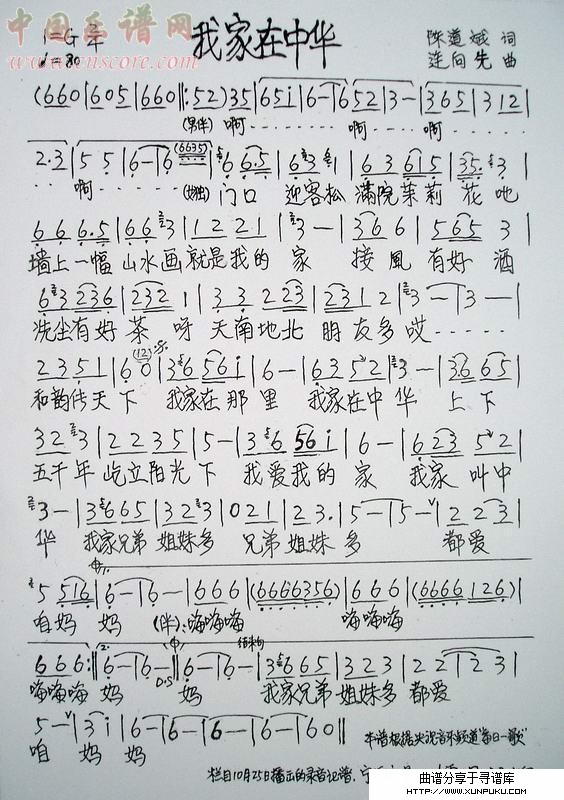 中国乐谱网
www.cnscore.com
1=G 2/4
♩=80
我家在中华
陈道斌 词
连向先 曲
(660|605|660|:52)35|651|6-|652|3-|365|312|
(男伴) 啊 啊 啊
2·3|55|6-|6(6635)|66·5|63 1|63615|35·3|
啊 (女独) 门口 迎客松 满院茉莉 花吔
666·5|663|1221|3-|366|5653|
墙上一幅 山水画 就是我的 家 接風 有好 酒
63236|2321|33223|2312|3-|3-|
洗尘有好 茶呀 天南地北 朋友多哎
2351|60|36561|6-|6352|3-|3665|
和韵传天下 我家在那里 我家在中华 上下
323|2235|5-|36561|6-|62352|
五千年 屹立阳光下 我爱我的 家 我家 叫中
3-|3665|323|021|23·|5-|5-|223|
华 我家兄弟 姐妹多 兄弟姐妹 多 都爱
5516|6-|6-|666|(6666356)|666|(6666126)|
咱妈 妈 (伴):嗨嗨嗨 嗨嗨嗨
666:|6-|6-||6-|6-|36665|323|22|223|
D.S 结束句
嗨嗨嗨 妈 妈 我家兄弟 姐妹多 都爱
5-|3i|6-|6-|6-|6-|60||
咱 妈 妈
本谱根据央视音乐频道"每日一歌"
栏目10月25日播出的录音记谱.
曲谱分享于寻谱库
WWW.XUNPUKU.COM